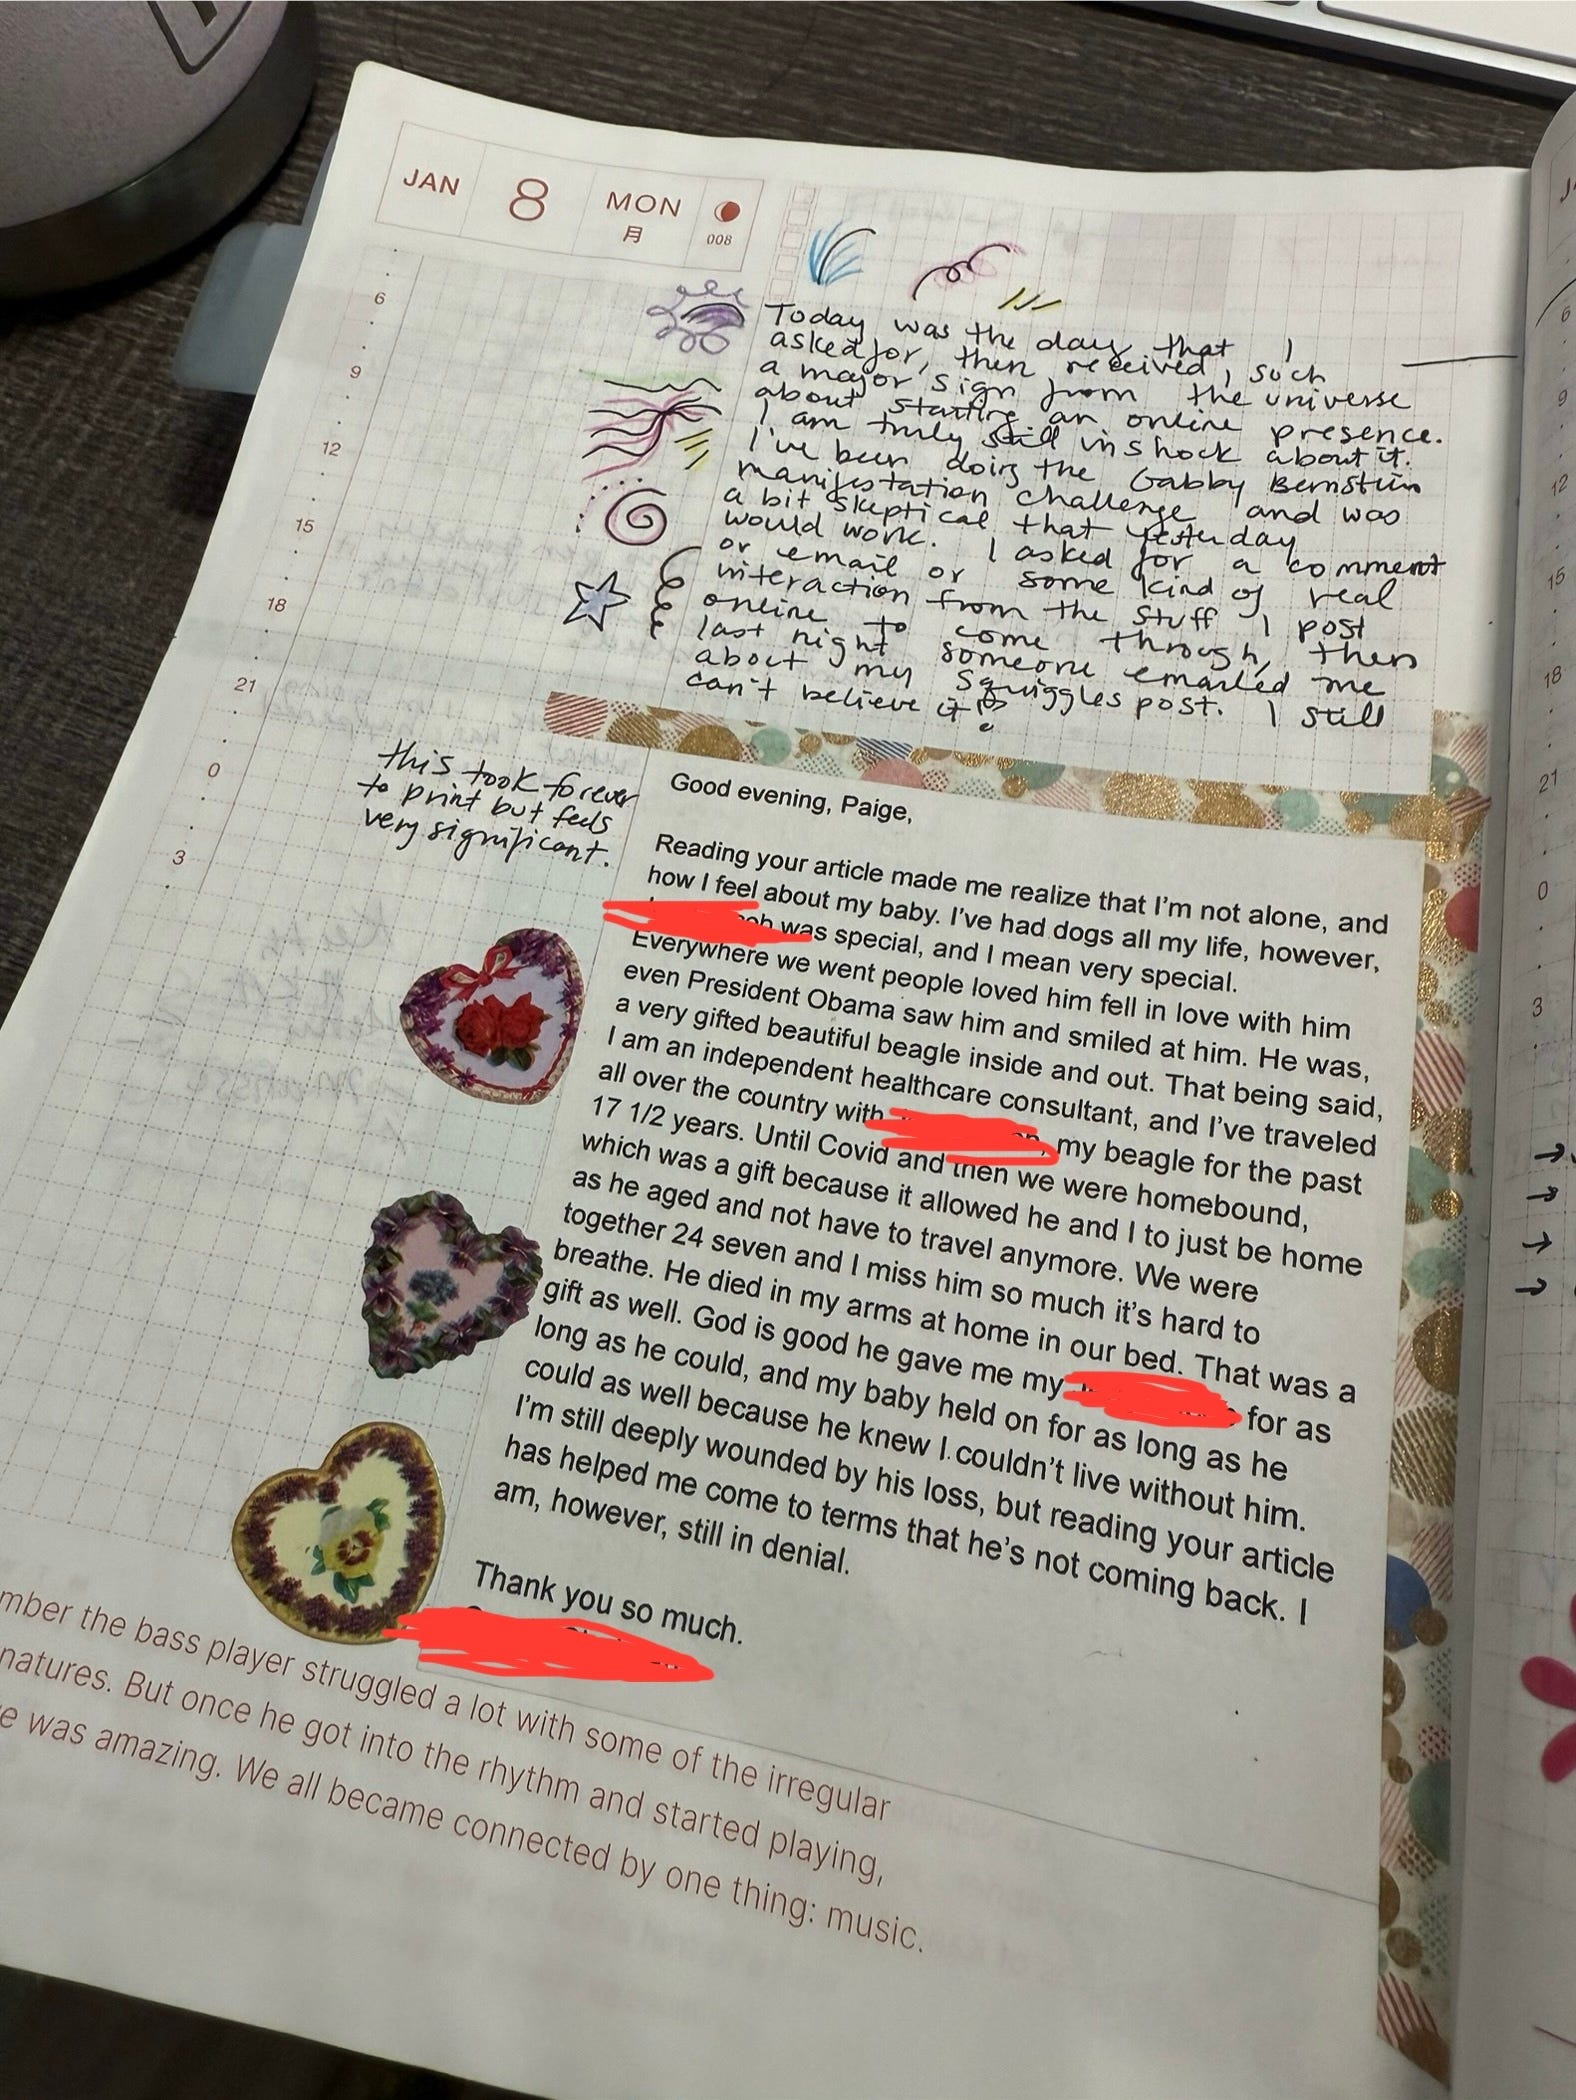 JAN 8 MON
月 008
6
9
12
15
18
21
0
3
Today was the day that I
asked for, then received, such
a major sign from the universe
about starting an online presence.
I am truly still in shock about it.
I've been doing the Gabby Bernstein
manifestation challenge and was
a bit skeptical that yesterday
would work. I asked for a comment
or email or some kind of real
interaction from the stuff I post
online to come through, then
last night someone emailed me
about my Squiggles post. I still
can't believe it!?
this took forever
to print but feels
very significant.
Good evening, Paige,
Reading your article made me realize that I'm not alone, and
how I feel about my baby. I've had dogs all my life, however,
was special, and I mean very special.
Everywhere we went people loved him fell in love with him
even President Obama saw him and smiled at him. He was,
a very gifted beautiful beagle inside and out. That being said,
I am an independent healthcare consultant, and I've traveled
all over the country with my beagle for the past
17 1/2 years. Until Covid and then we were homebound,
which was a gift because it allowed he and I to just be home
as he aged and not have to travel anymore. We were
together 24 seven and I miss him so much it's hard to
breathe. He died in my arms at home in our bed. That was a
gift as well. God is good he gave me my for as
long as he could, and my baby held on for as long as he
could as well because he knew I couldn't live without him.
I'm still deeply wounded by his loss, but reading your article
has helped me come to terms that he's not coming back. I
am, however, still in denial.
Thank you so much.
mber the bass player struggled a lot with some of the irregular
natures. But once he got into the rhythm and started playing,
e was amazing. We all became connected by one thing: music.
6
9
12
15
18
21
0
3